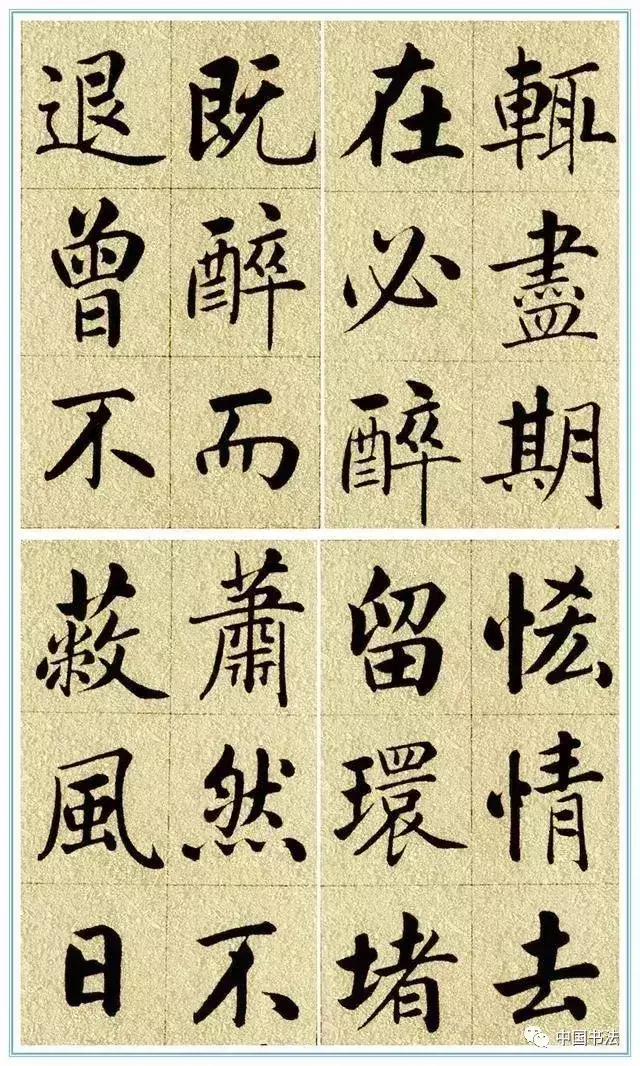 輒盡期
在必醉
既醉而
退曾不
恡情去
留環堵
蕭然不
蔽風日
中国书法